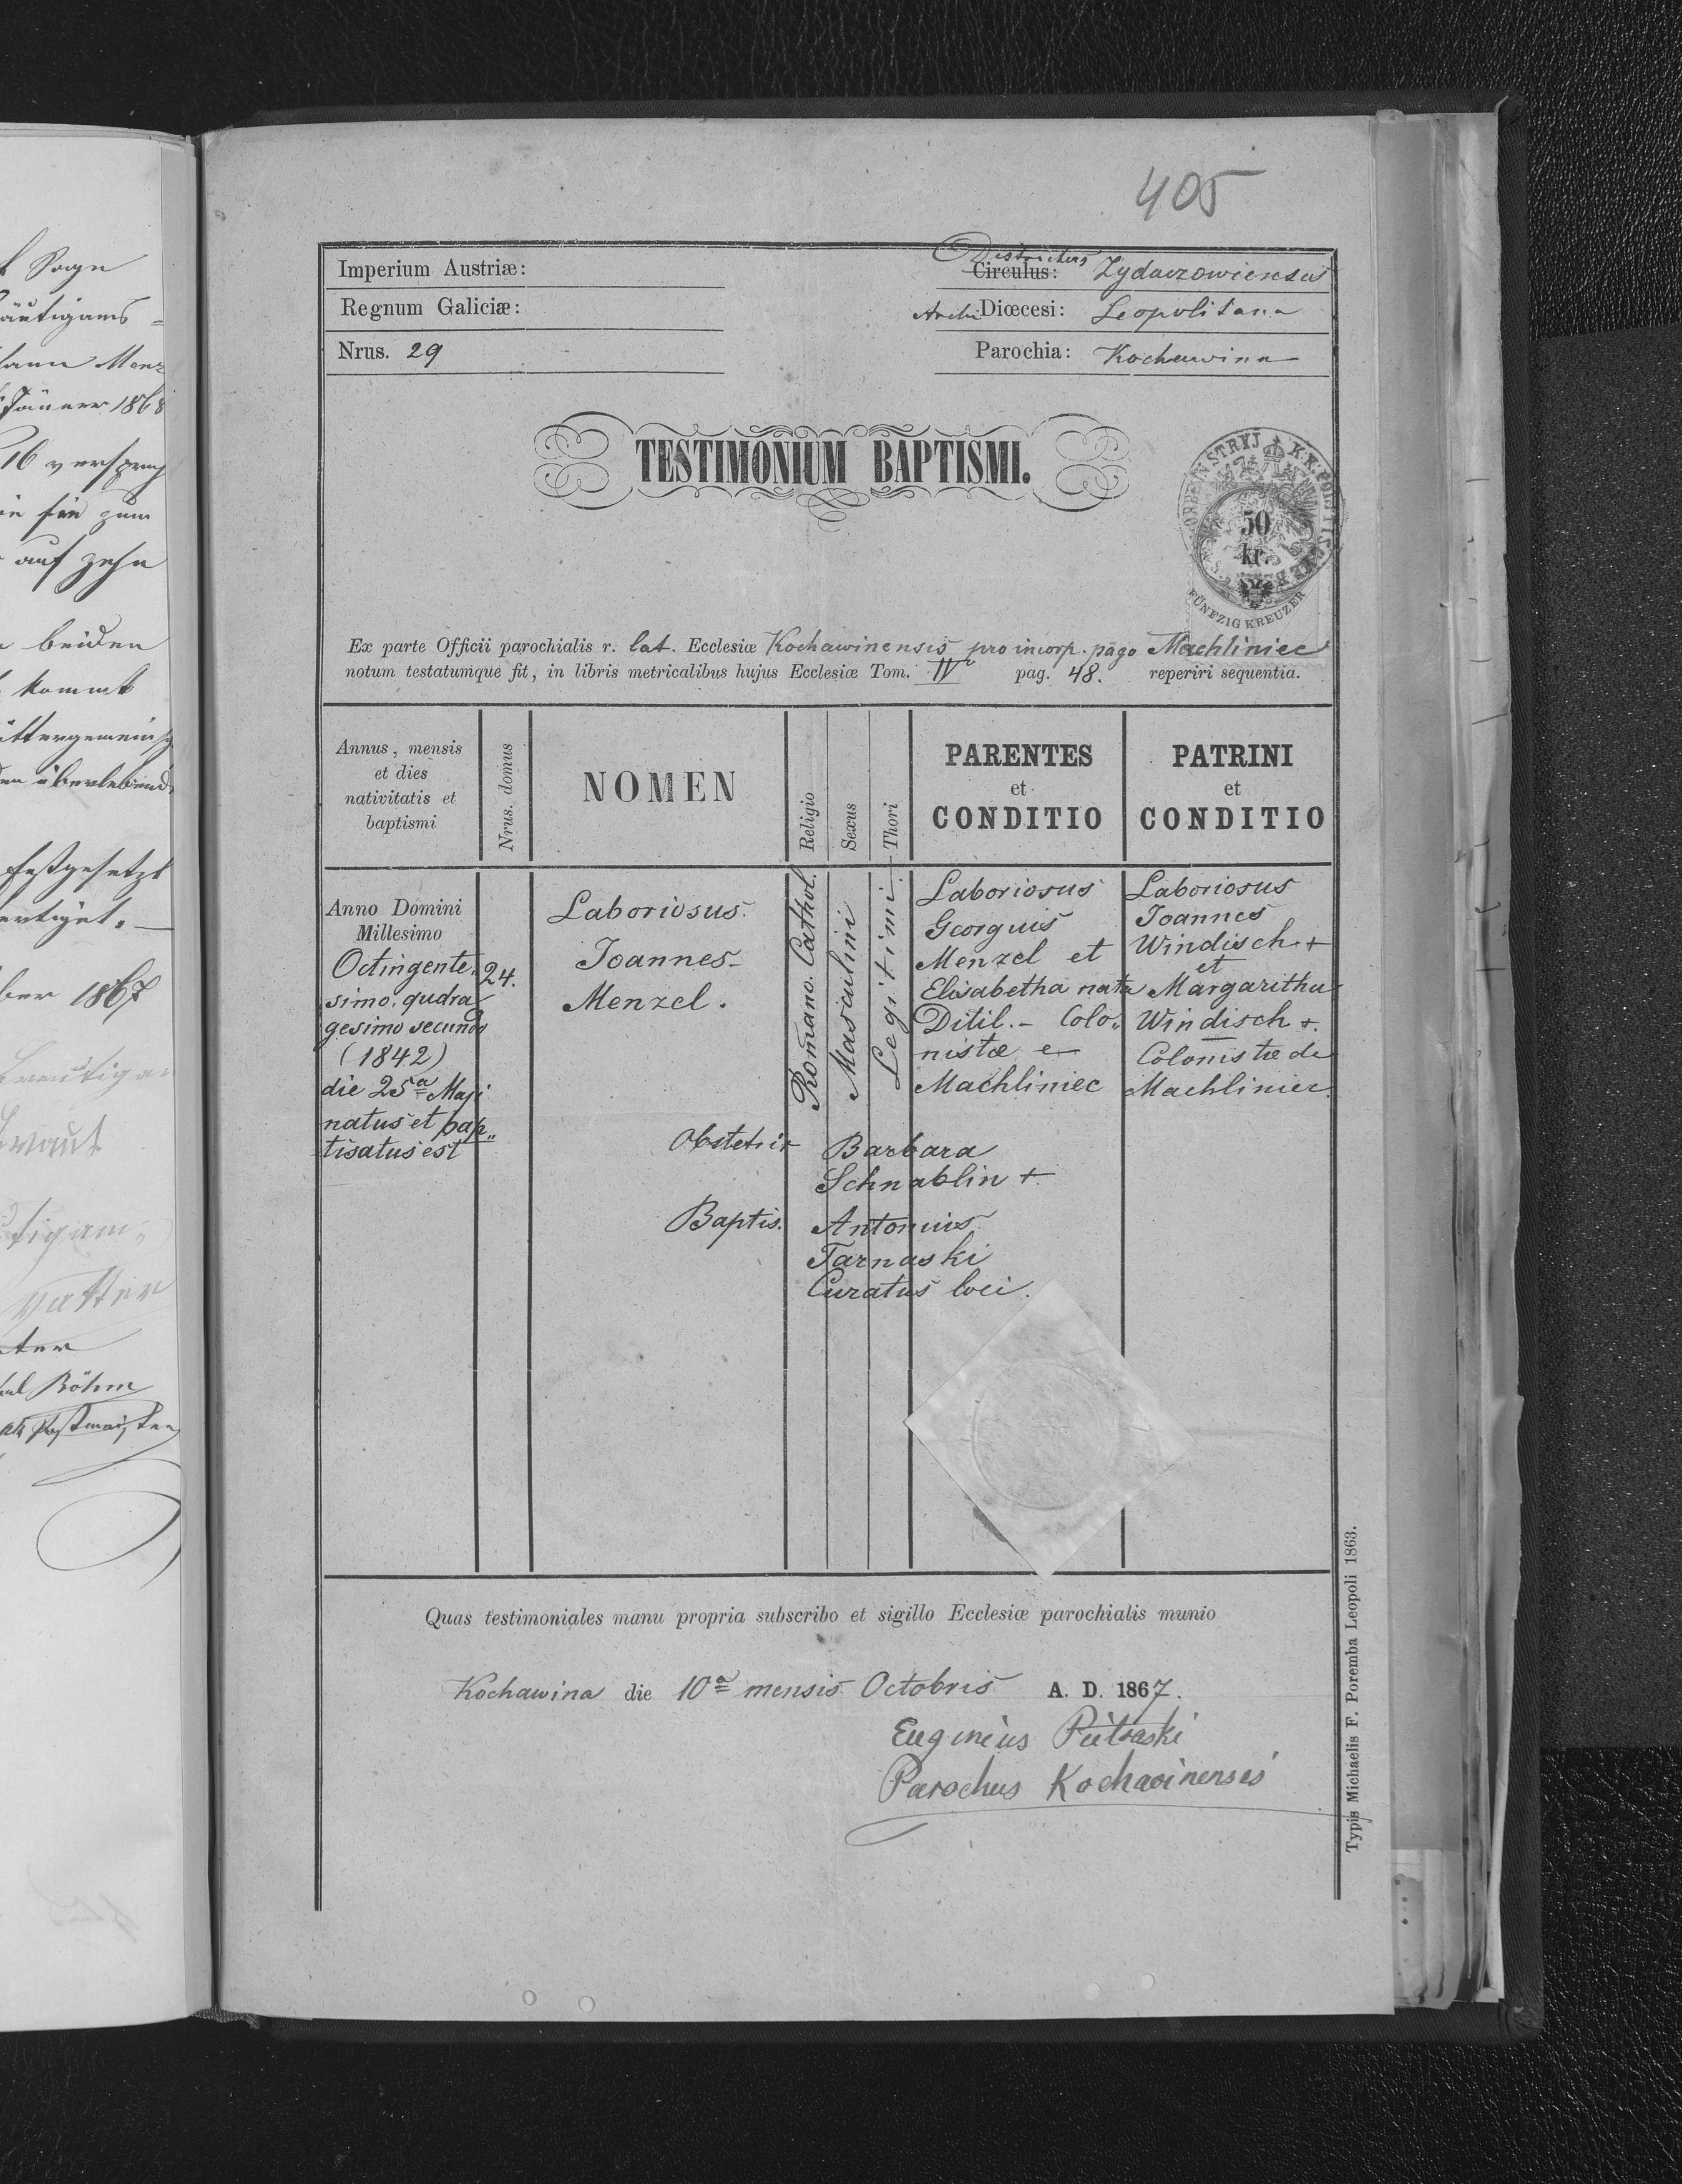 405
Imperium Austriæ:
Regnum Galiciæ:
Nrus. 29
Districtus
Circulus: Zydaczowiensis
Archi Diœcesi: Leopolitana
Parochia: Kochawina
TESTIMONIUM BAPTISMI.
K. K. STRYJ
50
kr.
FÜNFZIG KREUZER
Ex parte Officii parochialis r. lat. Ecclesiæ Kochawinensis pro incorp. pago Machliniec
notum testatumque fit, in libris metricalibus hujus Ecclesiæ Tom. IV pag. 48. reperiri sequentia.
Annus, mensis
et dies
nativitatis et
baptismi
Nrus. domus
NOMEN
Religio
Sexus
Thori
PARENTES
et
CONDITIO
PATRINI
et
CONDITIO
Anno Domini
Millesimo
Octingente„
simo, qudra
gesimo secundo
(1842)
die 25ª Maji
natus et bap„
tisatus est
24.
Laboriosus.
Joannes
Menzel.
Romano. Cathol.
Masculini
Legitimi
Laboriosus
Georguis
Menzel et
Elisabetha nata
Ditil. - Colo„
nistæ e
Machliniec
Laboriosus
Joannes
Windisch +
et
Margaritha
Windisch +.
Colonistæ de
Machliniec.
Obstetrix Barbara
Schnablin +.
Baptis. Antonius
Tarnaski
Curatus loci.
Quas testimoniales manu propria subscribo et sigillo Ecclesiæ parochialis munio
Kochawina die 10ª mensis Octobris A. D. 1867.
Eugenius
Parochus Kochavinensis
Typis Michaelis F. Poremba Leopoli 1863.
Jänner 1868
auf zehn
beiden
kommt
festgesetzt
1867
vatter
Böhm